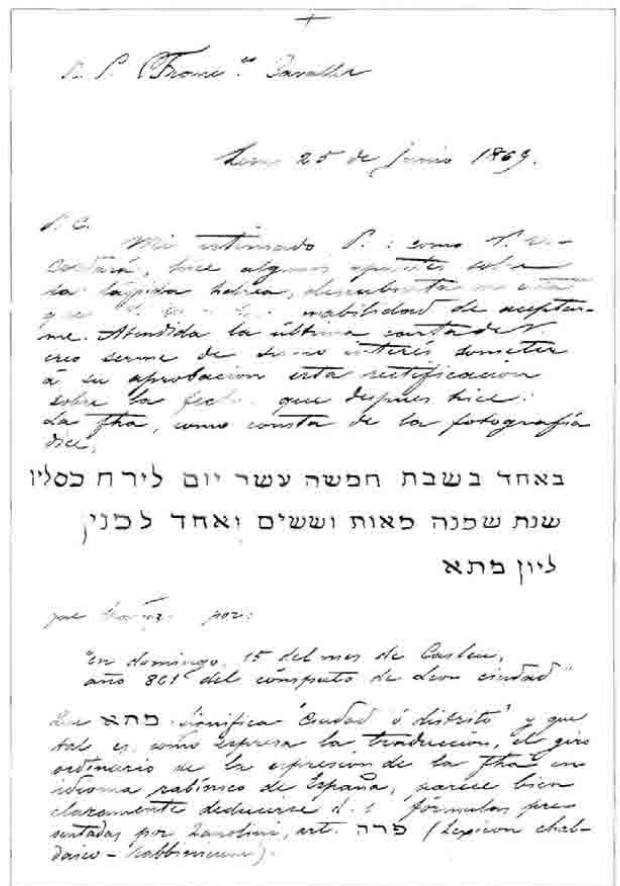 25 de Junio 1869.
P. C.
Mi estimado P.: como V. re-
cordará, hice algunos apuntes sobre
la lápida hebrea, descubierta
mabilidad de aceptar-
me. Atendida la última carta de V.
creo serme de sumo interés someter
á su aprobacion esta rectificacion
sobre la fecha que despues hice:
La fha, como consta de la fotografía
dice,
באחד בשבת חמשה עשר יום לירח כסליו
שנת שמנה מאות וששים ואחד למנין
ליון מתא
que por:
"En domingo, 15 del mes de Casleu,
año 861 del cómputo de Leon ciudad"
Que מתא significa 'Ciudad ó distrito' y que
tal es como espresa la traduccion, el giro
ordinario de la espresion de la fha en
idioma rabínico de España, parece bien
claramente deducirse fórmulas pre
sentadas por art. פרה (Lexicon chal-
daico-rabbinicum).